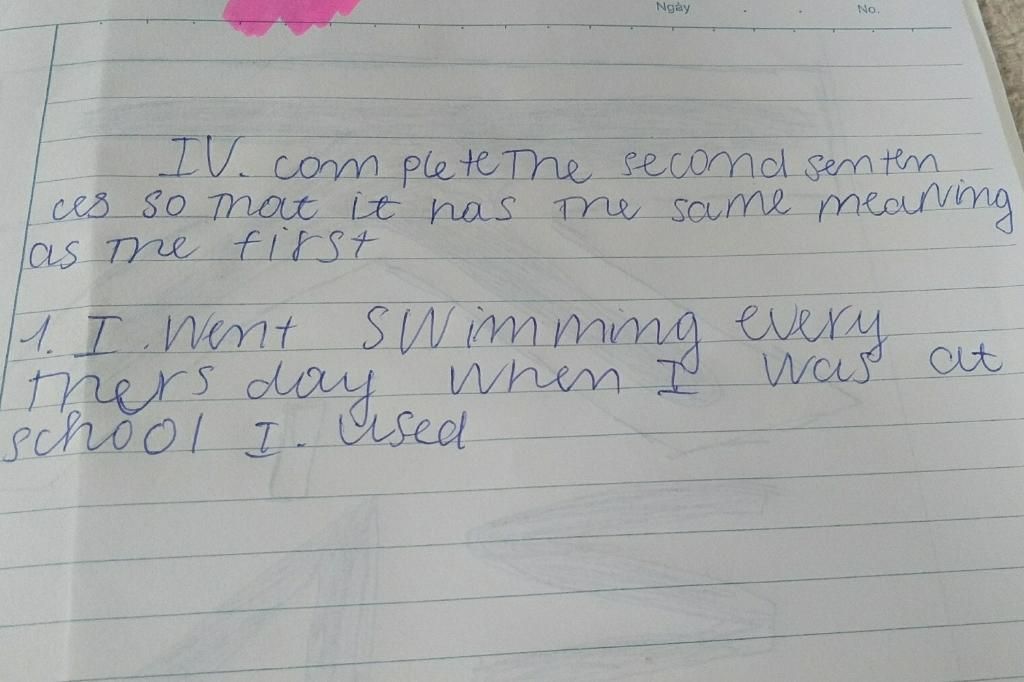 Ngày No.
IV. complete The second senten
ces so that it has the same meaning
as the first
1. I. Went swimming every
thers day when I was at
school I. used